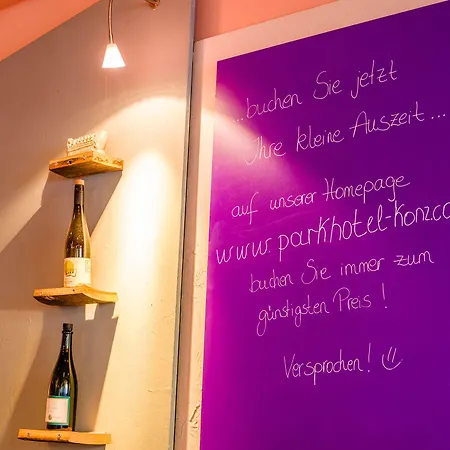 ...buchen Sie jetzt
Ihre kleine Auszeit...
auf unserer Homepage
www.parkhotel-konz.co
buchen Sie immer zum
günstigsten Preis!
Versprochen! :)